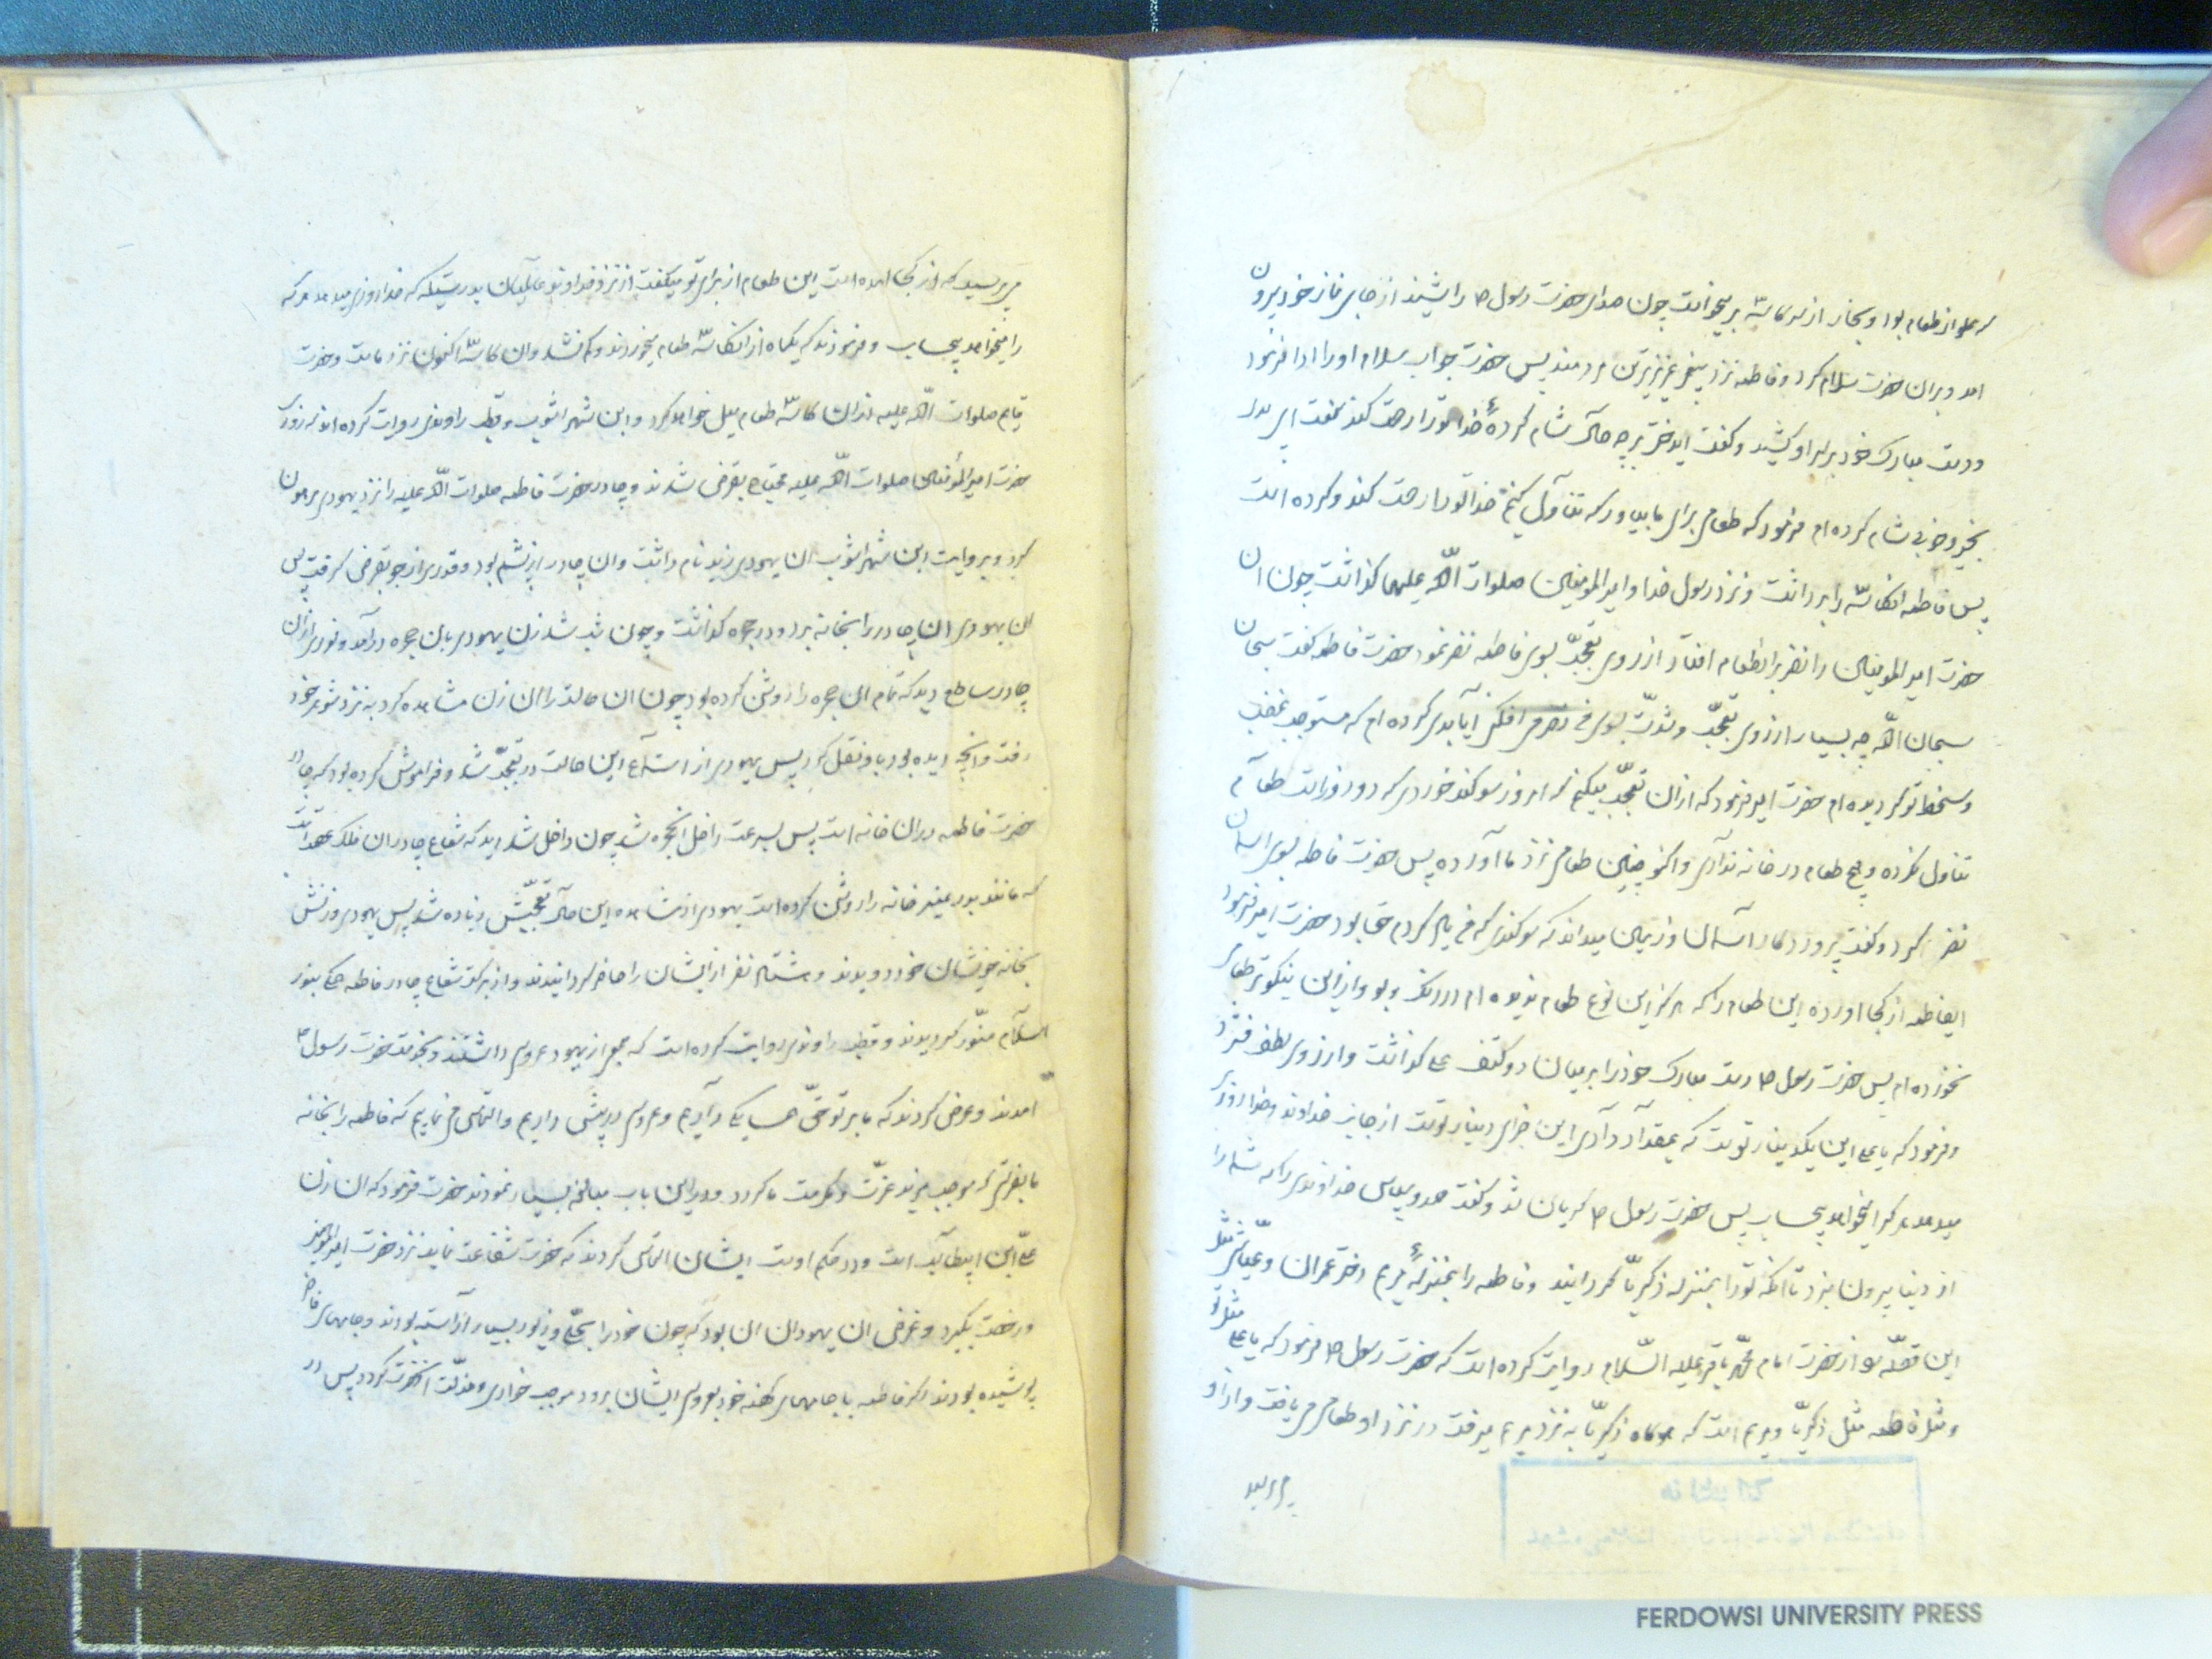 که مملو از طعام بود و بخار از سر کاسه بر میخواست چون صدای حضرت رسول ص را شنید از جای نماز خود بیرون
امد و بران حضرت سلام کرد و فاطمه نزد پیغمبر عزیزترین مردمند پس حضرت جواب سلام او را ادا فرمود
و دست مبارک خود بر سر او کشید و گفت ایدختر بر چه حال شام کردهٔ خدا تو را رحمت کند گفت ای پدر
بخیر و خوبی شام کرده ام فرمود که طعامی برای ما بیاور که تناول کنیم خدا تو را رحمت کند و کرده است
پس فاطمه انکاسه را برداشت و نزد رسول خدا و امیر المومنین صلوات الله علیهما گذاشت چون ان
حضرت امیر المومنین را نظر بر انطعام افتاد از روی تعجب بسوی فاطمه نظر نمود حضرت فاطمه گفت سبحان
سبحان الله چه بسیار از روی تعجب و شدت بسوی من نظر می افکنی آیا بدی کرده ام که مستوجب غضب
و سخط تو گردیده ام حضرت امیر فرمود که از ان تعجب میکنم که امروز سوگند خوردی که دو روز است طعام
تناول نکرده و هیچ طعام در خانه نداری و اکنون چنین طعامی نزد ما آورده پس حضرت فاطمه بسوی اسمان
نظر کرد و گفت پروردکار آسمان و زمین میداند که سوگندی که من یاد کردم حق بود حضرت امیر فرمود
ایفاطمه از کجا اورده این طعام را که هرگز این نوع طعام ندیده ام در رنک و بو و از این نیکوتر طعامی
نخورده ام پس حضرت رسول ص دست مبارک خود را بر میان دو کتف علی گذاشت و از روی لطف فشرد
و فرمود که یا علی این بدل دینار توست که بمقداد دادی این جزای دینار توست از جانب خداوند و خدا روزی
میدهد هر که را میخواهد بیحساب پس حضرت رسول ص گریان شد و گفت حمد و سپاس خداوندی را که شما را
از دنیا بیرون نبرد تا انکه تو را بمنزله زکریا گردانید و فاطمه را بمنزلهٔ مریم دختر عمران و عیاشی مثل
این قصه را از حضرت امام محمد باقر علیه السلام روایت کرده است که حضرت رسول ص فرمود که یا علی مثل تو
و مثل فاطمه مثل زکریا و مریم است که هرگاه زکریا به نزد مریم میرفت در نزد او طعامی می یافت و از او
می پرسید
می پرسید که از کجا امده است این طعام از برای تو میگفت از نزد خداوند عالمیان بدرستیکه خدا روزی میدهد هر که
را میخواهد بیحساب و فرمودند که یکماه از انکاسه طعام میخوردند و کم نشد و ان کاسه اکنون نزد ماست و حضرت
قایم صلوات الله علیه از ان کاسه طعام میل خواهد کرد و ابن شهر اشوب و قطب راوندی روایت کرده اند که روزی
حضرت امیر المؤمنین صلوات الله علیه محتاج بقرض شدند و چادر حضرت فاطمه صلوات الله علیه را نزد یهودی مرهون
کرد و بروایت ابن شهر اشوب ان یهودی زید نام داشت و ان چادر از پشم بود و قدری از جو بقرض گرفت پس
ان یهودی ان چادر را بخانه برد و در حجره گذاشت و چون شب شد زن یهودی بان حجره درآمد و نوری از ان
چادر ساطع دید که تمام ان حجره را روشن کرده بود چون ان حالت را ان زن مشاهده کرد به نزد شوهر خود
رفت و انچه دیده بود باو نقل کرد پس یهودی از استماع این حالت در تعجب شد و فراموش کرده بود که چادر
حضرت فاطمه در ان خانه است پس بسرعت داخل انحجره شد چون داخل شد دید که شعاع چادر ان فلک عصمت
که مانند بدر منیر خانه را روشن کرده است یهودی از مشاهده این حال تعجبش زیاده شد پس یهودی و زنش
بخانه خویشان خود دویدند و هشتاد نفر از ایشان را حاضر گردانیدند و از برکت شعاع چادر فاطمه همگی بنور
اسلام منور گردیدند و قطب راوندی روایت کرده است که جمعی از یهود عروسی داشتند و بخدمت حضرت رسول ص
امدند و عرض کردند که ما بر تو حق همسایگی داریم و عروسی در پیش داریم و التماس می نماییم که فاطمه را بخانه
ما بفرستی که موجب مزید عزت و کرامت ما گردد و در این باب مبالغه بسیار نمودند حضرت فرمود که ان زن
علی ابن ابیطالب است و در حکم اوست ایشان التماس کردند که حضرت شفاعت نماید نزد حضرت امیر المومنین
و رخصت بگیرد و غرض ان یهودان ان بود که چون خود را بحلی و زیور بسیار آراسته بودند و جامهای فاخر
پوشیده بودند اگر فاطمه با جامهای کهنه خود بعروسی ایشان برود موجب خواری و مذلت انحضرت گردد پس در
FERDOWSI UNIVERSITY PRESS